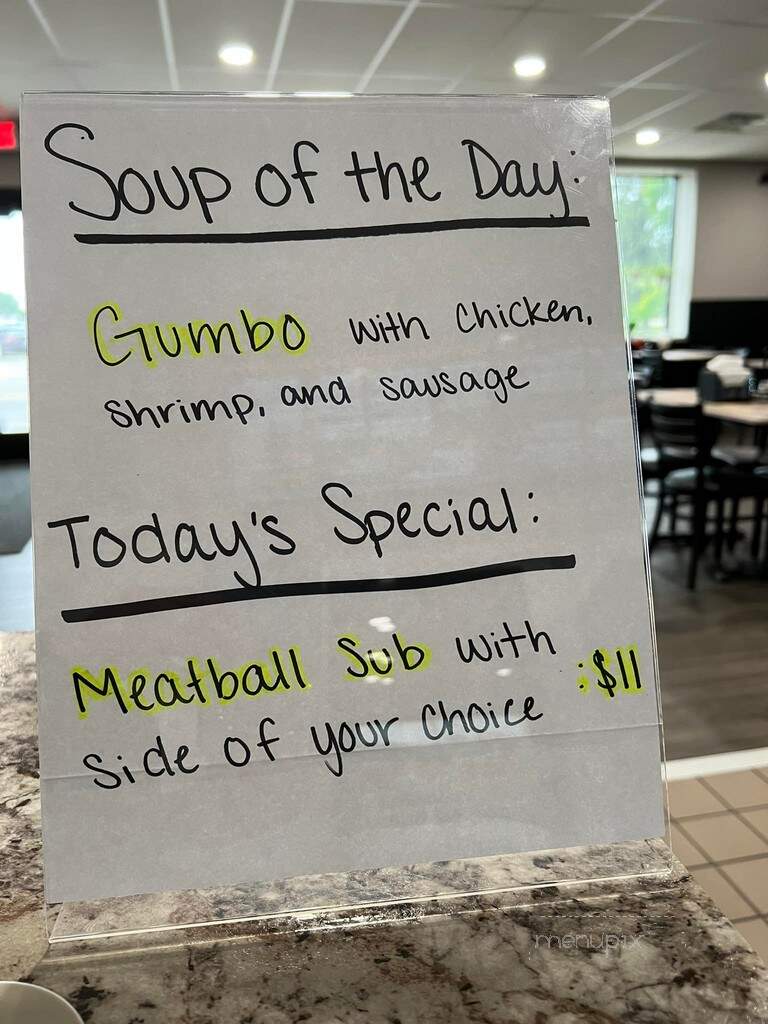 Soup of the Day:
Gumbo with chicken,
shrimp, and sausage
Today's Special:
Meatball Sub with :$11
side of your choice
menupix